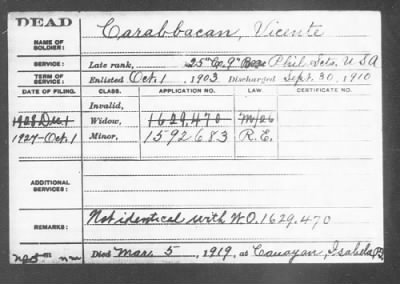 DEAD
NAME OF SOLDIER: Carabbacan, Vicente
SERVICE: Late rank, 25" Co. 9" Phil. Scts. U S A
TERM OF SERVICE: Enlisted Oct. 1, 1903 Discharged Sept. 30, 1910
DATE OF FILING. CLASS. APPLICATION NO. LAW. CERTIFICATE NO.
Invalid,
1928 Dec 1 Widow, 1629,470
1927-Oct.1 Minor, 1592683 R.E.
ADDITIONAL SERVICES:
REMARKS: Not identical with W.O. 1629,470
Died Mar. 5, 1919, at Cauayan, Isabela